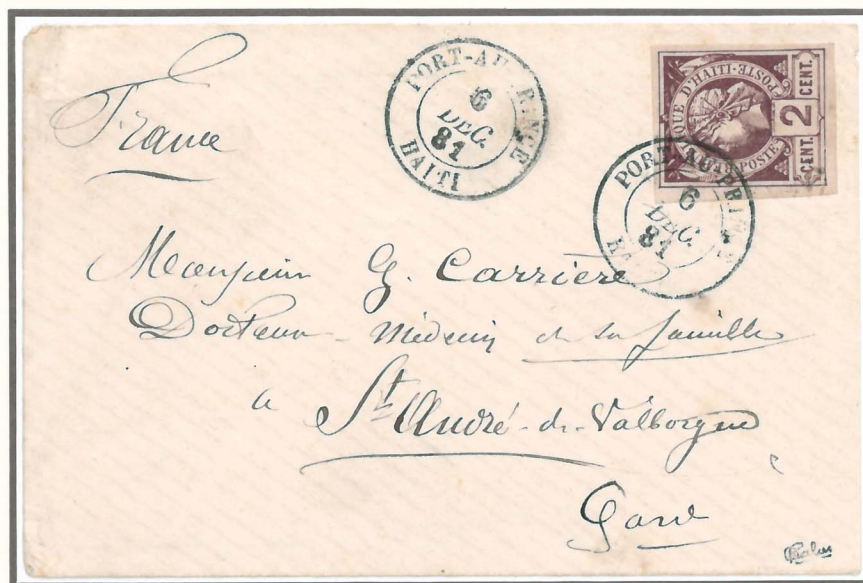 France
PORT-AU-PRINCE
6
DEC.
81
HAITI
QUE D'HAITI-POSTE
POSTE
CENT. 2 CENT.
PORT-AU-PRIN
6
DEC.
81
HA
Monsieur G. Carrière
Docteur-Médecin de sa famille
a St André-de-Valborgne
Gard